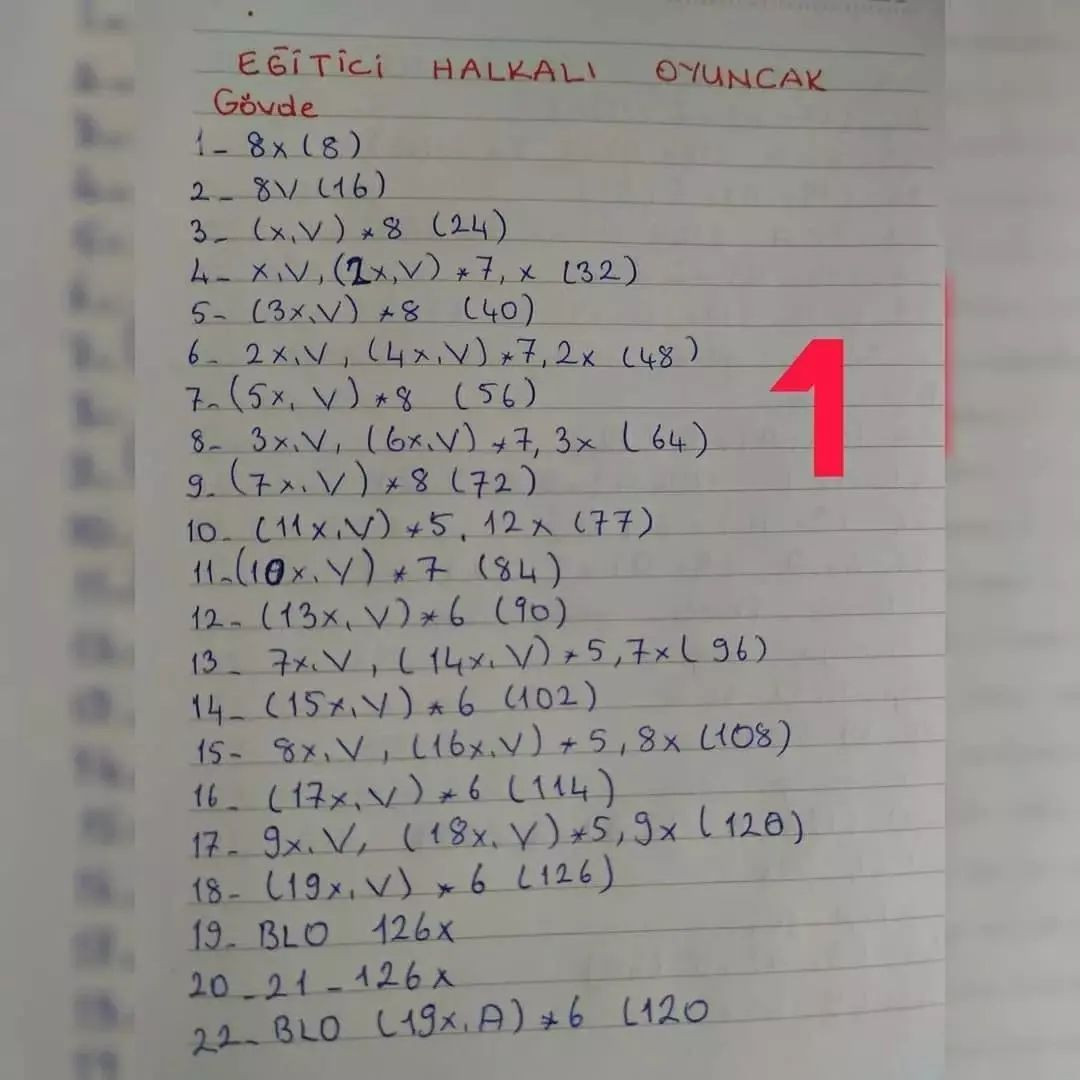 EĞİTİCİ HALKALI OYUNCAK
Gövde
1- 8x (8)
2- 8V (16)
3- (x,V) * 8 (24)
4- x,V, (2x,V) * 7, x (32)
5- (3x,V) * 8 (40)
6- 2x,V, (4x,V) * 7, 2x (48)
7- (5x, V) * 8 (56)
8- 3x,V, (6x,V) * 7, 3x (64)
9- (7x,V) * 8 (72)
10- (11x,V) * 5, 12x (77)
11- (10x,V) * 7 (84)
12- (13x, V) * 6 (90)
13- 7x,V, (14x,V) * 5, 7x (96)
14- (15x,V) * 6 (102)
15- 8x,V, (16x,V) * 5, 8x (108)
16- (17x,V) * 6 (114)
17- 9x,V, (18x,V) * 5, 9x (120)
18- (19x,V) * 6 (126)
19- BLO 126x
20-21-126x
22- BLO (19x,A) * 6 (120
1